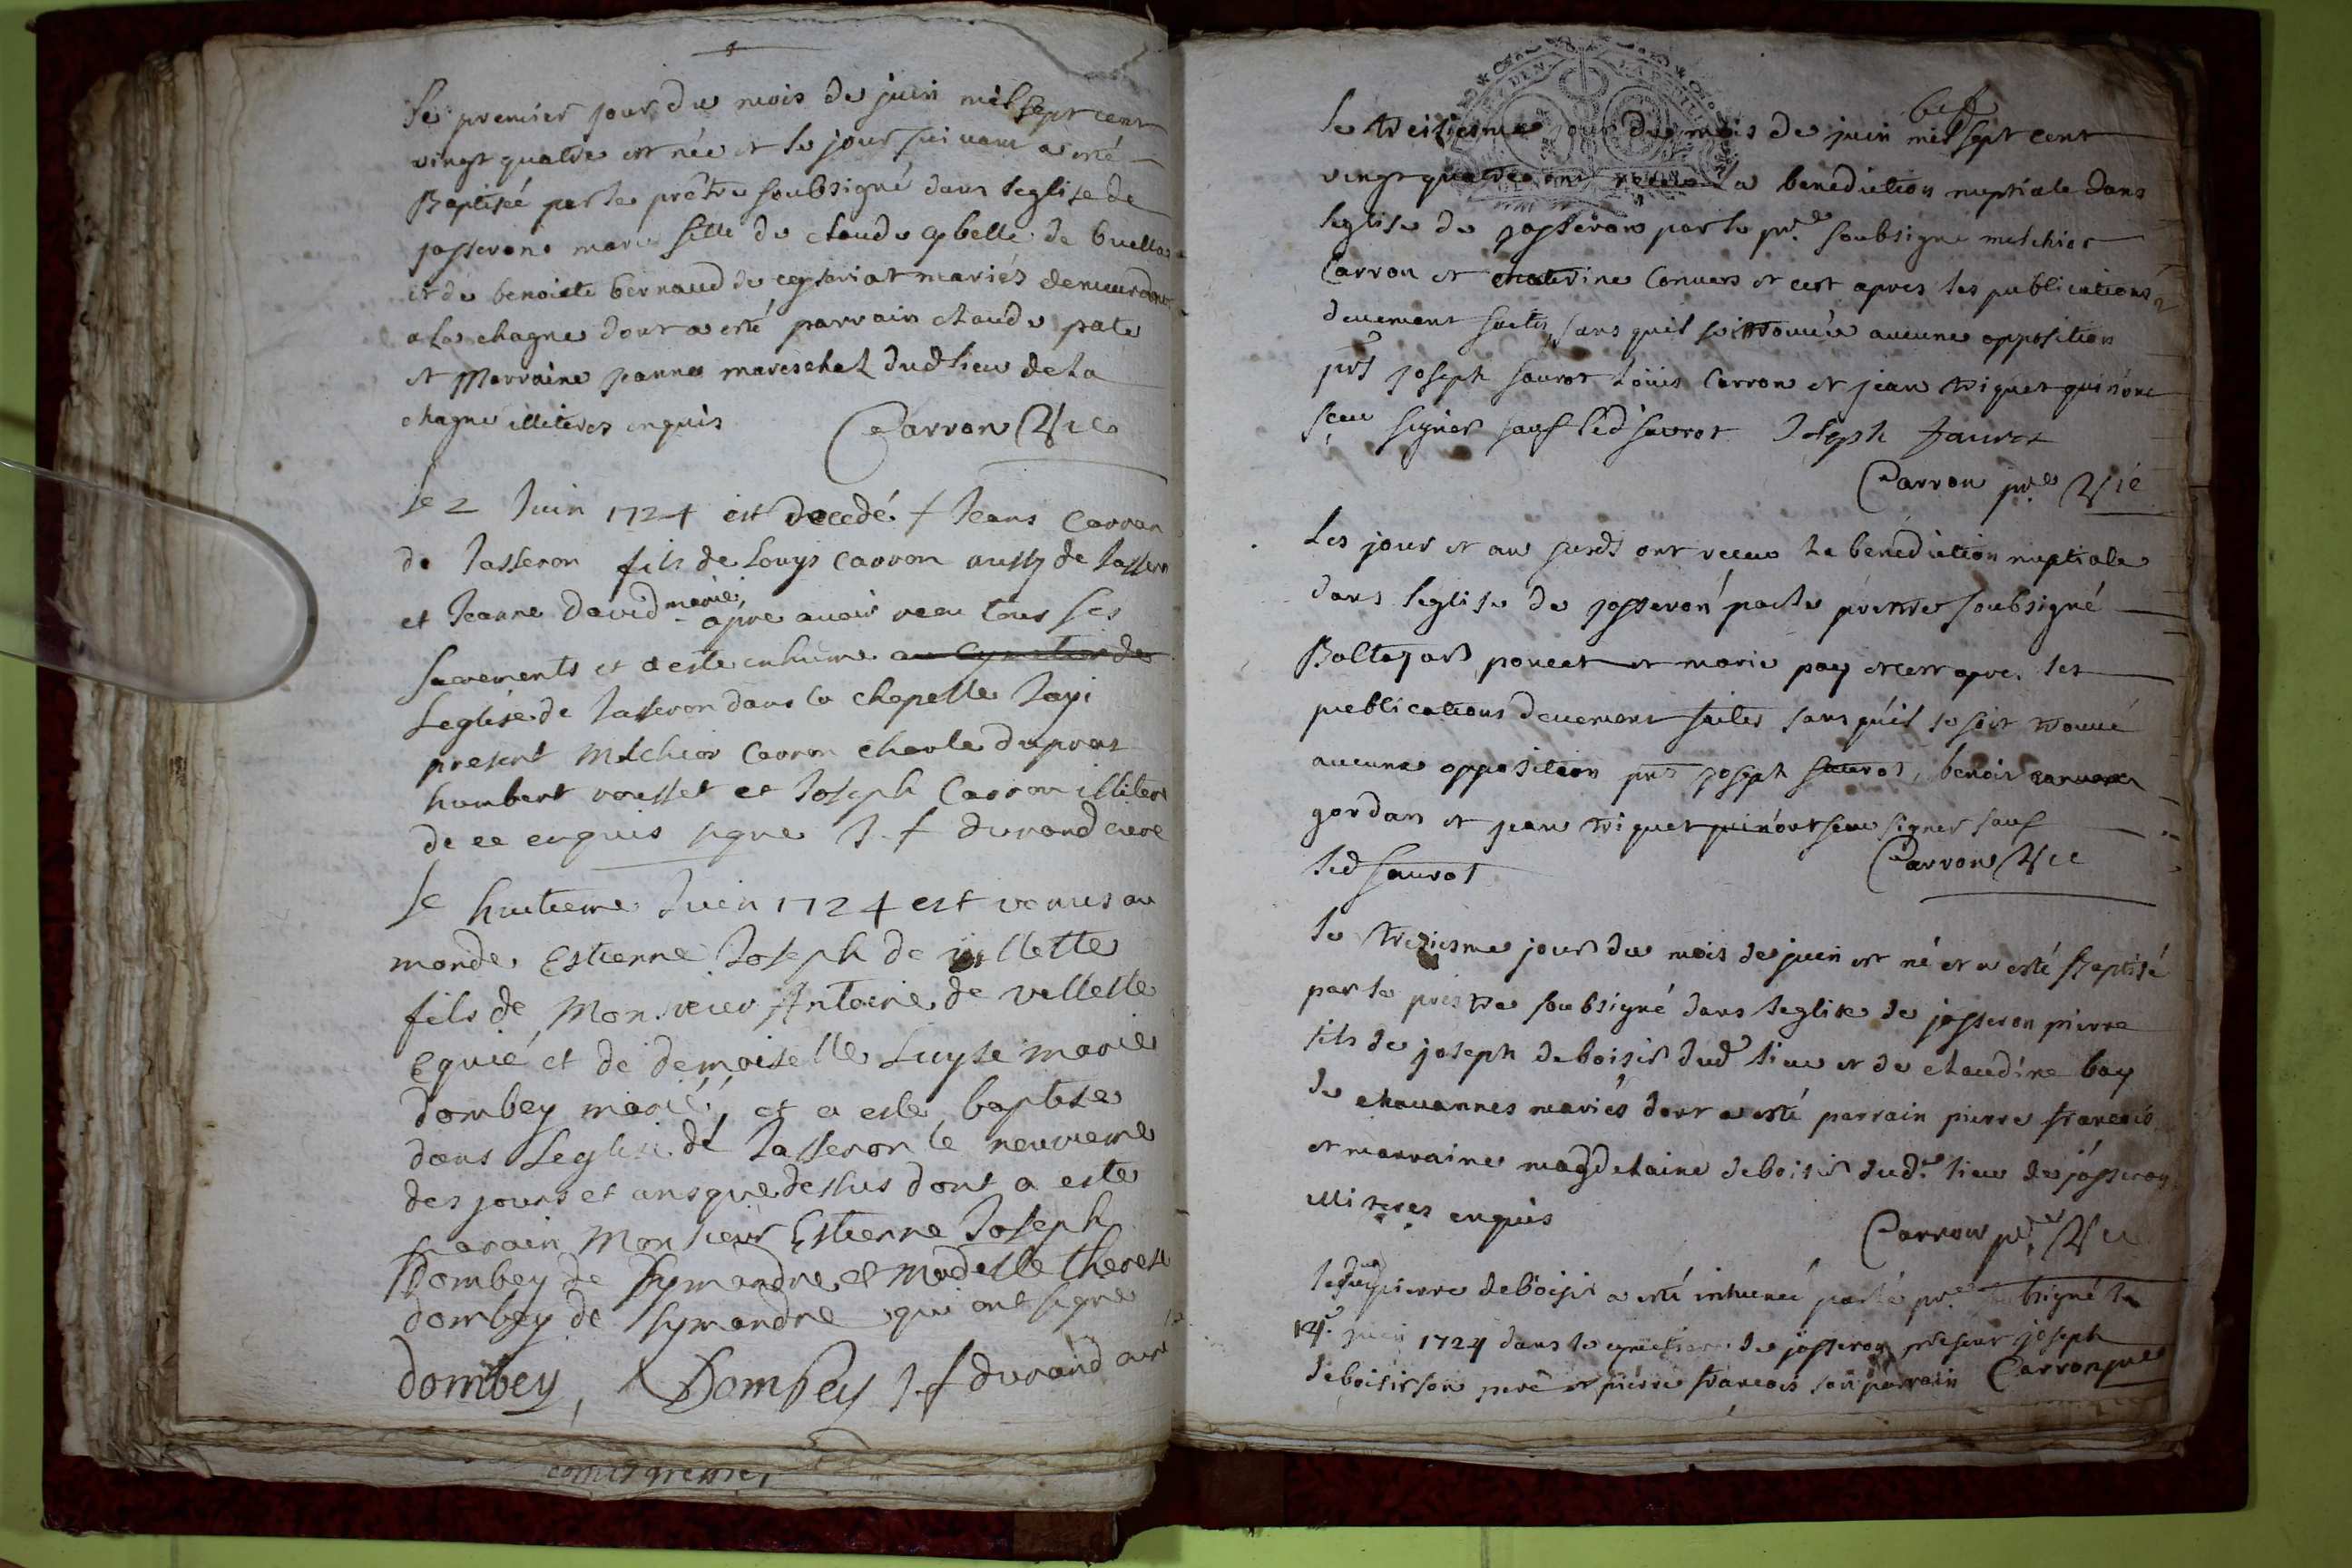 Le premier jour du mois de juin mil sept cent
vingt quatre est née et le jour suivant a esté
Baptisée par le prêtre soubsigné dans leglise de
jasseron marie fille de claude gobelle de buella
et de benoiste bernaud de ceyseriat mariés demeurant
a la chagne dont a esté parrain claude pate
et Marraine janne mareschal dud lieu de la
chagne illiteres enquis Carron Vic
le 2 Juin 1724 est decedé Jean Carron
de Jasseron fils de Louys Carron aussy de Jasseron
et Jeanne David marié, apre avoir receu tous ses
sacrements et a este enhumé au cymetier de
Leglise de Jasseron dans la chapelle
present Melchior Carron charle dupras
humbert rousset et Joseph Carron illitere
de ce enquis signe J. f durand cure
le huitieme Juin 1724 est venus au
monde Estienne Joseph de villette
fils de Monsieur Antoine de villette
Equié et de demoiselle Luyse marie
dombey marié, et a este baptise
dans Leglise de Jasseron le neuvieme
des jours et ans que dessus dont a este
parain Monsieur Estienne Joseph
Dombey de Symandre et therese
dombey de symandre qui ont signe
dombey, Dombey J. f durand cure
Le treiziesme jour du mois de juin mil sept cent
vingt quatre ont receu la benediction nuptiale dans
leglise de jasseron par le pre soubsigné melchior
Carron et Convers et cest apres les publications
deuement faites sans quil soit trouvée aucune opposition
pnts joseph saurot loüis Carron et jean triquet qui nont
sceu signer sauf led saurot Joseph Saurot
Carron pre Vic
Les jour et an susds ont receu la benediction nuptiale
dans leglise de jasseron par le prettre soubsigné
Baltazard poncet et marie pay et cest apres les
publications deuement faites sans quil se soit trouvé
aucune opposition pnts joseph saurot, benoit
gordan et jean triquet qui nont sceu signer sauf
led saurot Carron Vic
Le treziesme jour du mois de juin est né et a esté Baptisé
par le prestre soubsigné dans leglise de jasseron pierre
fils de joseph deboisis dud lieu et de claudine bay
de chavannes mariés dont a esté parrain pierre francois
et marraine magdelaine deboisis dud. lieu de jasseron
illiteres enquis Carron pre Vic
ledit pierre deboisis a esté inhumé par le pre soubsigné le
14e juin 1724 dans le cymetiere de jasseron present joseph
deboisis son pere et pierre francois son parrain Carron pre